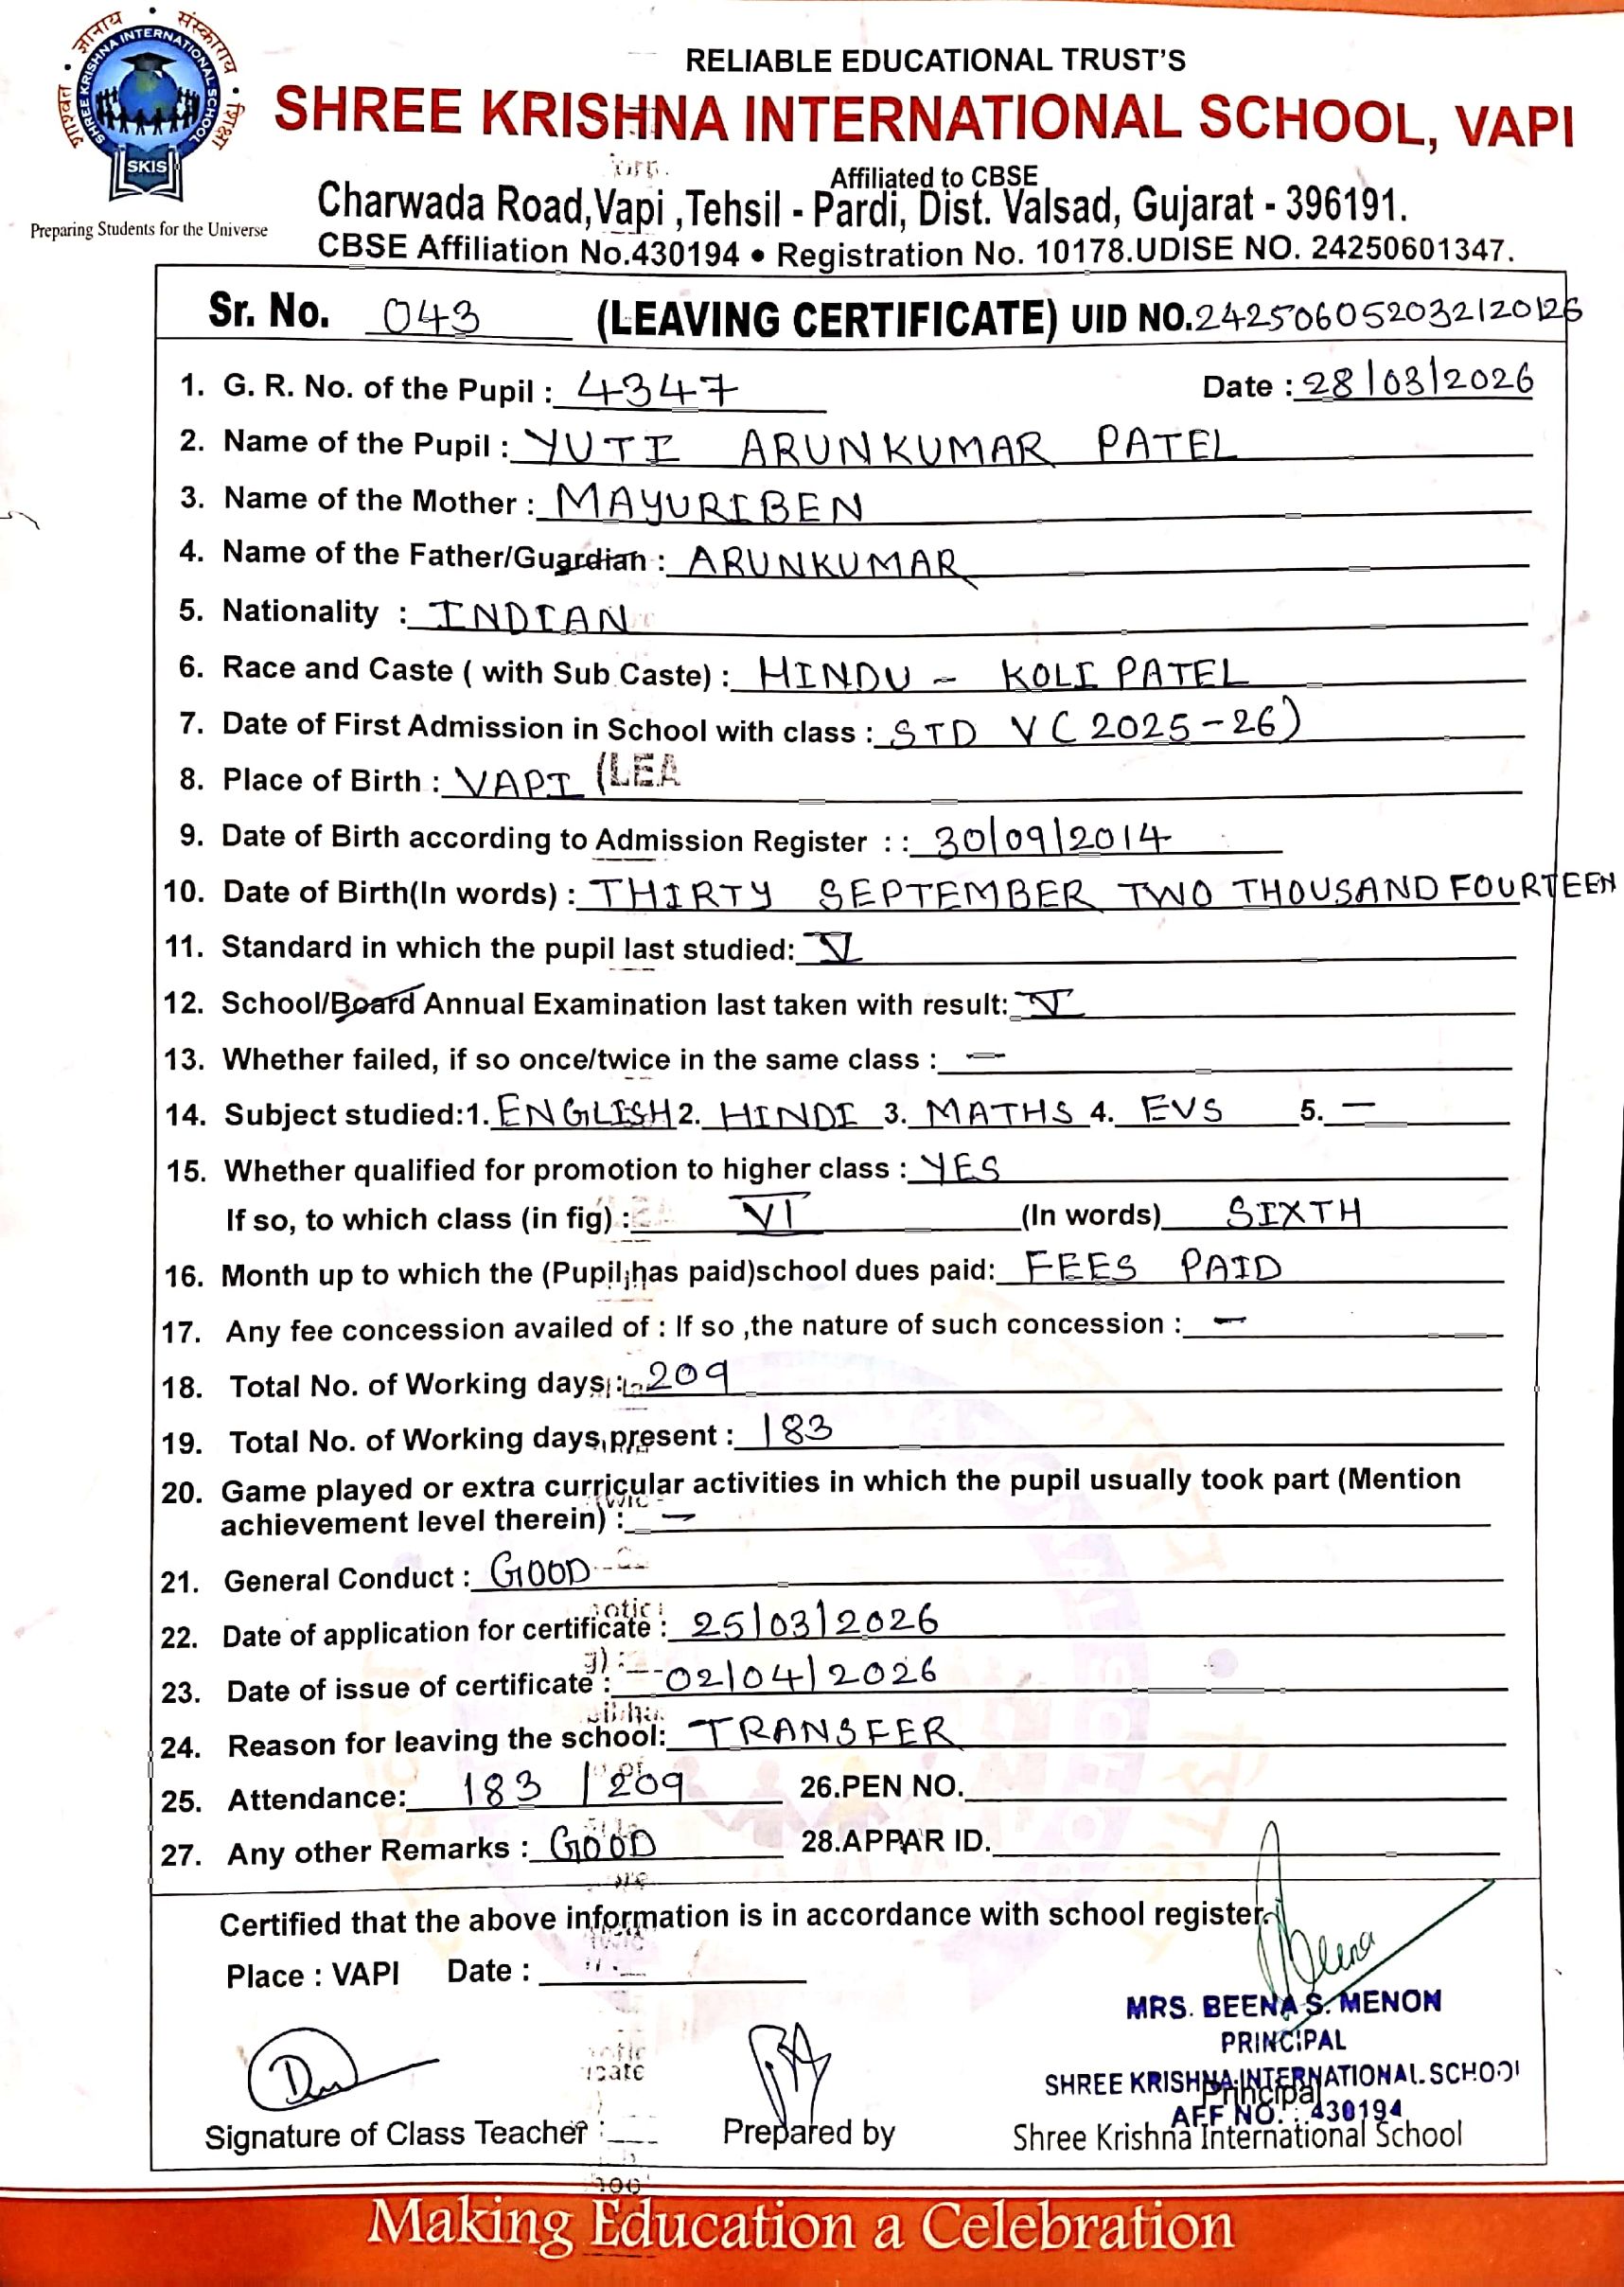 शाश्वत • ज्ञानाय • संस्काराय • शिक्षा
SHREE KRISHNA INTERNATIONAL SCHOOL
SKIS
Preparing Students for the Universe
RELIABLE EDUCATIONAL TRUST'S
SHREE KRISHNA INTERNATIONAL SCHOOL, VAPI
Affiliated to CBSE
Charwada Road,Vapi ,Tehsil - Pardi, Dist. Valsad, Gujarat - 396191.
CBSE Affiliation No.430194 • Registration No. 10178.UDISE NO. 24250601347.
Sr. No. 043 (LEAVING CERTIFICATE) UID NO.242506052032120126
1. G. R. No. of the Pupil : 4347 Date : 28/03/2026
2. Name of the Pupil : YUTI ARUNKUMAR PATEL
3. Name of the Mother : MAYURIBEN
4. Name of the Father/Guardian : ARUNKUMAR
5. Nationality : INDIAN
6. Race and Caste ( with Sub Caste) : HINDU - KOLI PATEL
7. Date of First Admission in School with class : STD V (2025-26)
8. Place of Birth : VAPI (LEA
9. Date of Birth according to Admission Register : : 30/09/2014
10. Date of Birth(In words) : THIRTY SEPTEMBER TWO THOUSAND FOURTEEN
11. Standard in which the pupil last studied: V
12. School/Board Annual Examination last taken with result: V
13. Whether failed, if so once/twice in the same class : -
14. Subject studied:1. ENGLISH 2. HINDI 3. MATHS 4. EVS 5. -
15. Whether qualified for promotion to higher class : YES
If so, to which class (in fig) : VI (In words) SIXTH
16. Month up to which the (Pupil has paid)school dues paid: FEES PAID
17. Any fee concession availed of : If so ,the nature of such concession : -
18. Total No. of Working days : 209
19. Total No. of Working days present : 183
20. Game played or extra curricular activities in which the pupil usually took part (Mention
achievement level therein) : -
21. General Conduct : GOOD
22. Date of application for certificate : 25/03/2026
23. Date of issue of certificate : 02/04/2026
24. Reason for leaving the school: TRANSFER
25. Attendance: 183 / 209 26.PEN NO.
27. Any other Remarks : GOOD 28.APPAR ID.
Certified that the above information is in accordance with school register.
Place : VAPI Date :
Beena
MRS. BEENA S. MENON
PRINCIPAL
SHREE KRISHNA INTERNATIONAL SCHOOL
Principal
AFF NO. : 430194
Signature of Class Teacher : Prepared by Shree Krishna International School
Making Education a Celebration